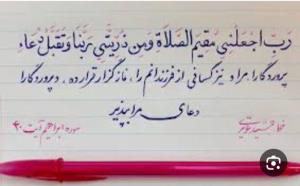 رَبِّ اجْعَلْنِي مُقِيمَ الصَّلَاةِ وَمِن ذُرِّيَّتِي رَبَّنَا وَتَقَبَّلْ دُعَاءِ
پروردگارا، مرا و نیز کسانی از فرزندانم را، نمازگزار قرار ده، و پروردگارا
دعای مرا بپذیر
سوره ابراهیم آیت ۴۰